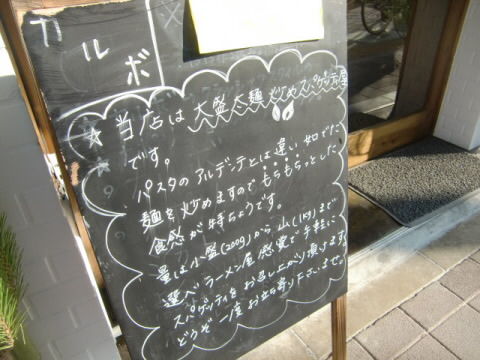 カルボ
★当店は大盛太麺炒めスパゲッティ屋
です。
パスタのアルデンテとは違い茹でた
麺を炒めますのでもちもちっとした
食感が特ちょうです。
量は小盛(200g)から山(1kg)まで
選べラーメン屋感覚で手軽に
スパゲッティをお召し上がり頂けます。
どうぞ一度お立ち寄り下さいませ。